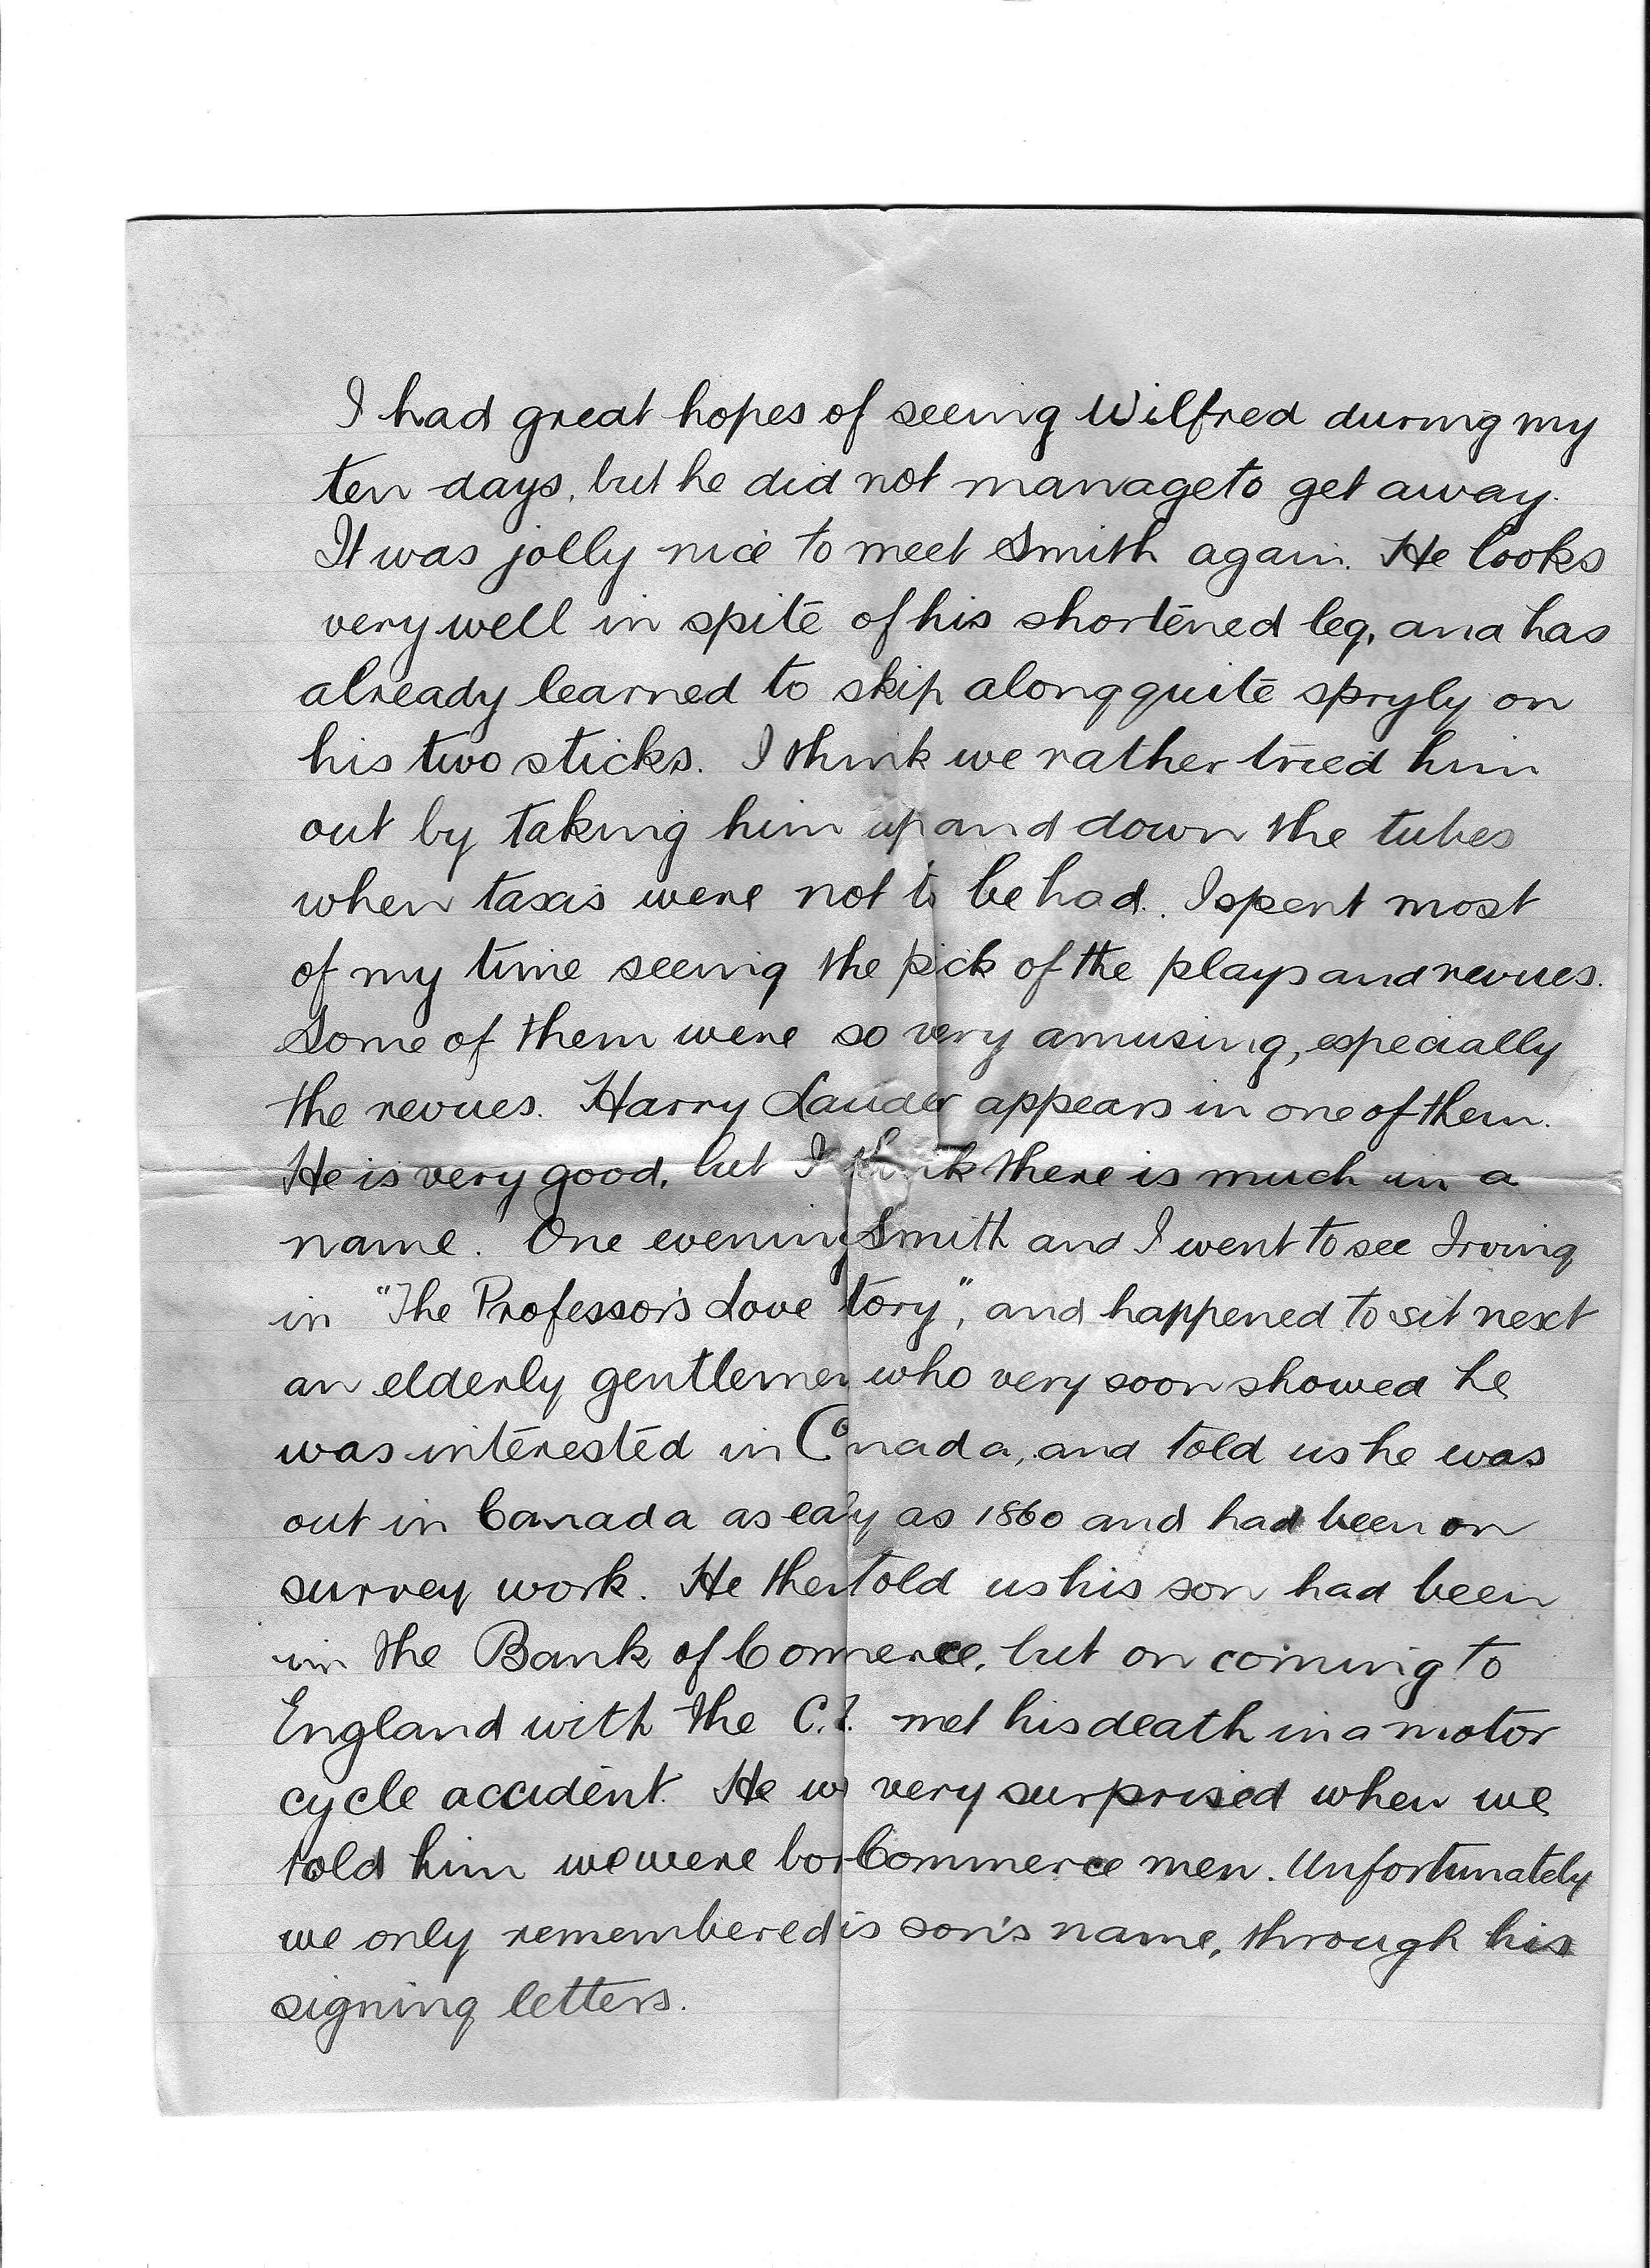 I had great hopes of seeing Wilfred during my
ten days, but he did not manage to get away.
It was jolly nice to meet Smith again. He looks
very well in spite of his shortened leg, and has
already learned to skip along quite spryly on
his two sticks. I think we rather tried him
out by taking him up and down the tubes
when taxis were not to be had. I spent most
of my time seeing the pick of the plays and revues.
Some of them were so very amusing, especially
the revues. Harry Lauder appears in one of them.
He is very good, but I think there is much in a
name. One evening Smith and I went to see Irving
in "The Professor's Love tory", and happened to sit next
an elderly gentlemen who very soon showed he
was interested in Canada, and told us he was
out in Canada as ealy as 1860 and had been on
survey work. He then told us his son had been
in the Bank of Commerce, but on coming to
England with the C. met his death in a motor
cycle accident. He w very surprised when we
told him we were bo Commerce men. Unfortunately
we only remembered is son's name, through his
signing letters.